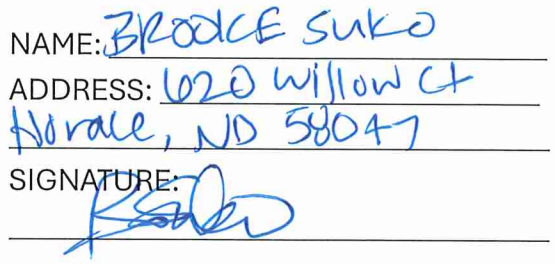 NAME: BROOKE SUKO
ADDRESS: 620 Willow Ct
Horace, ND 58047
SIGNATURE: